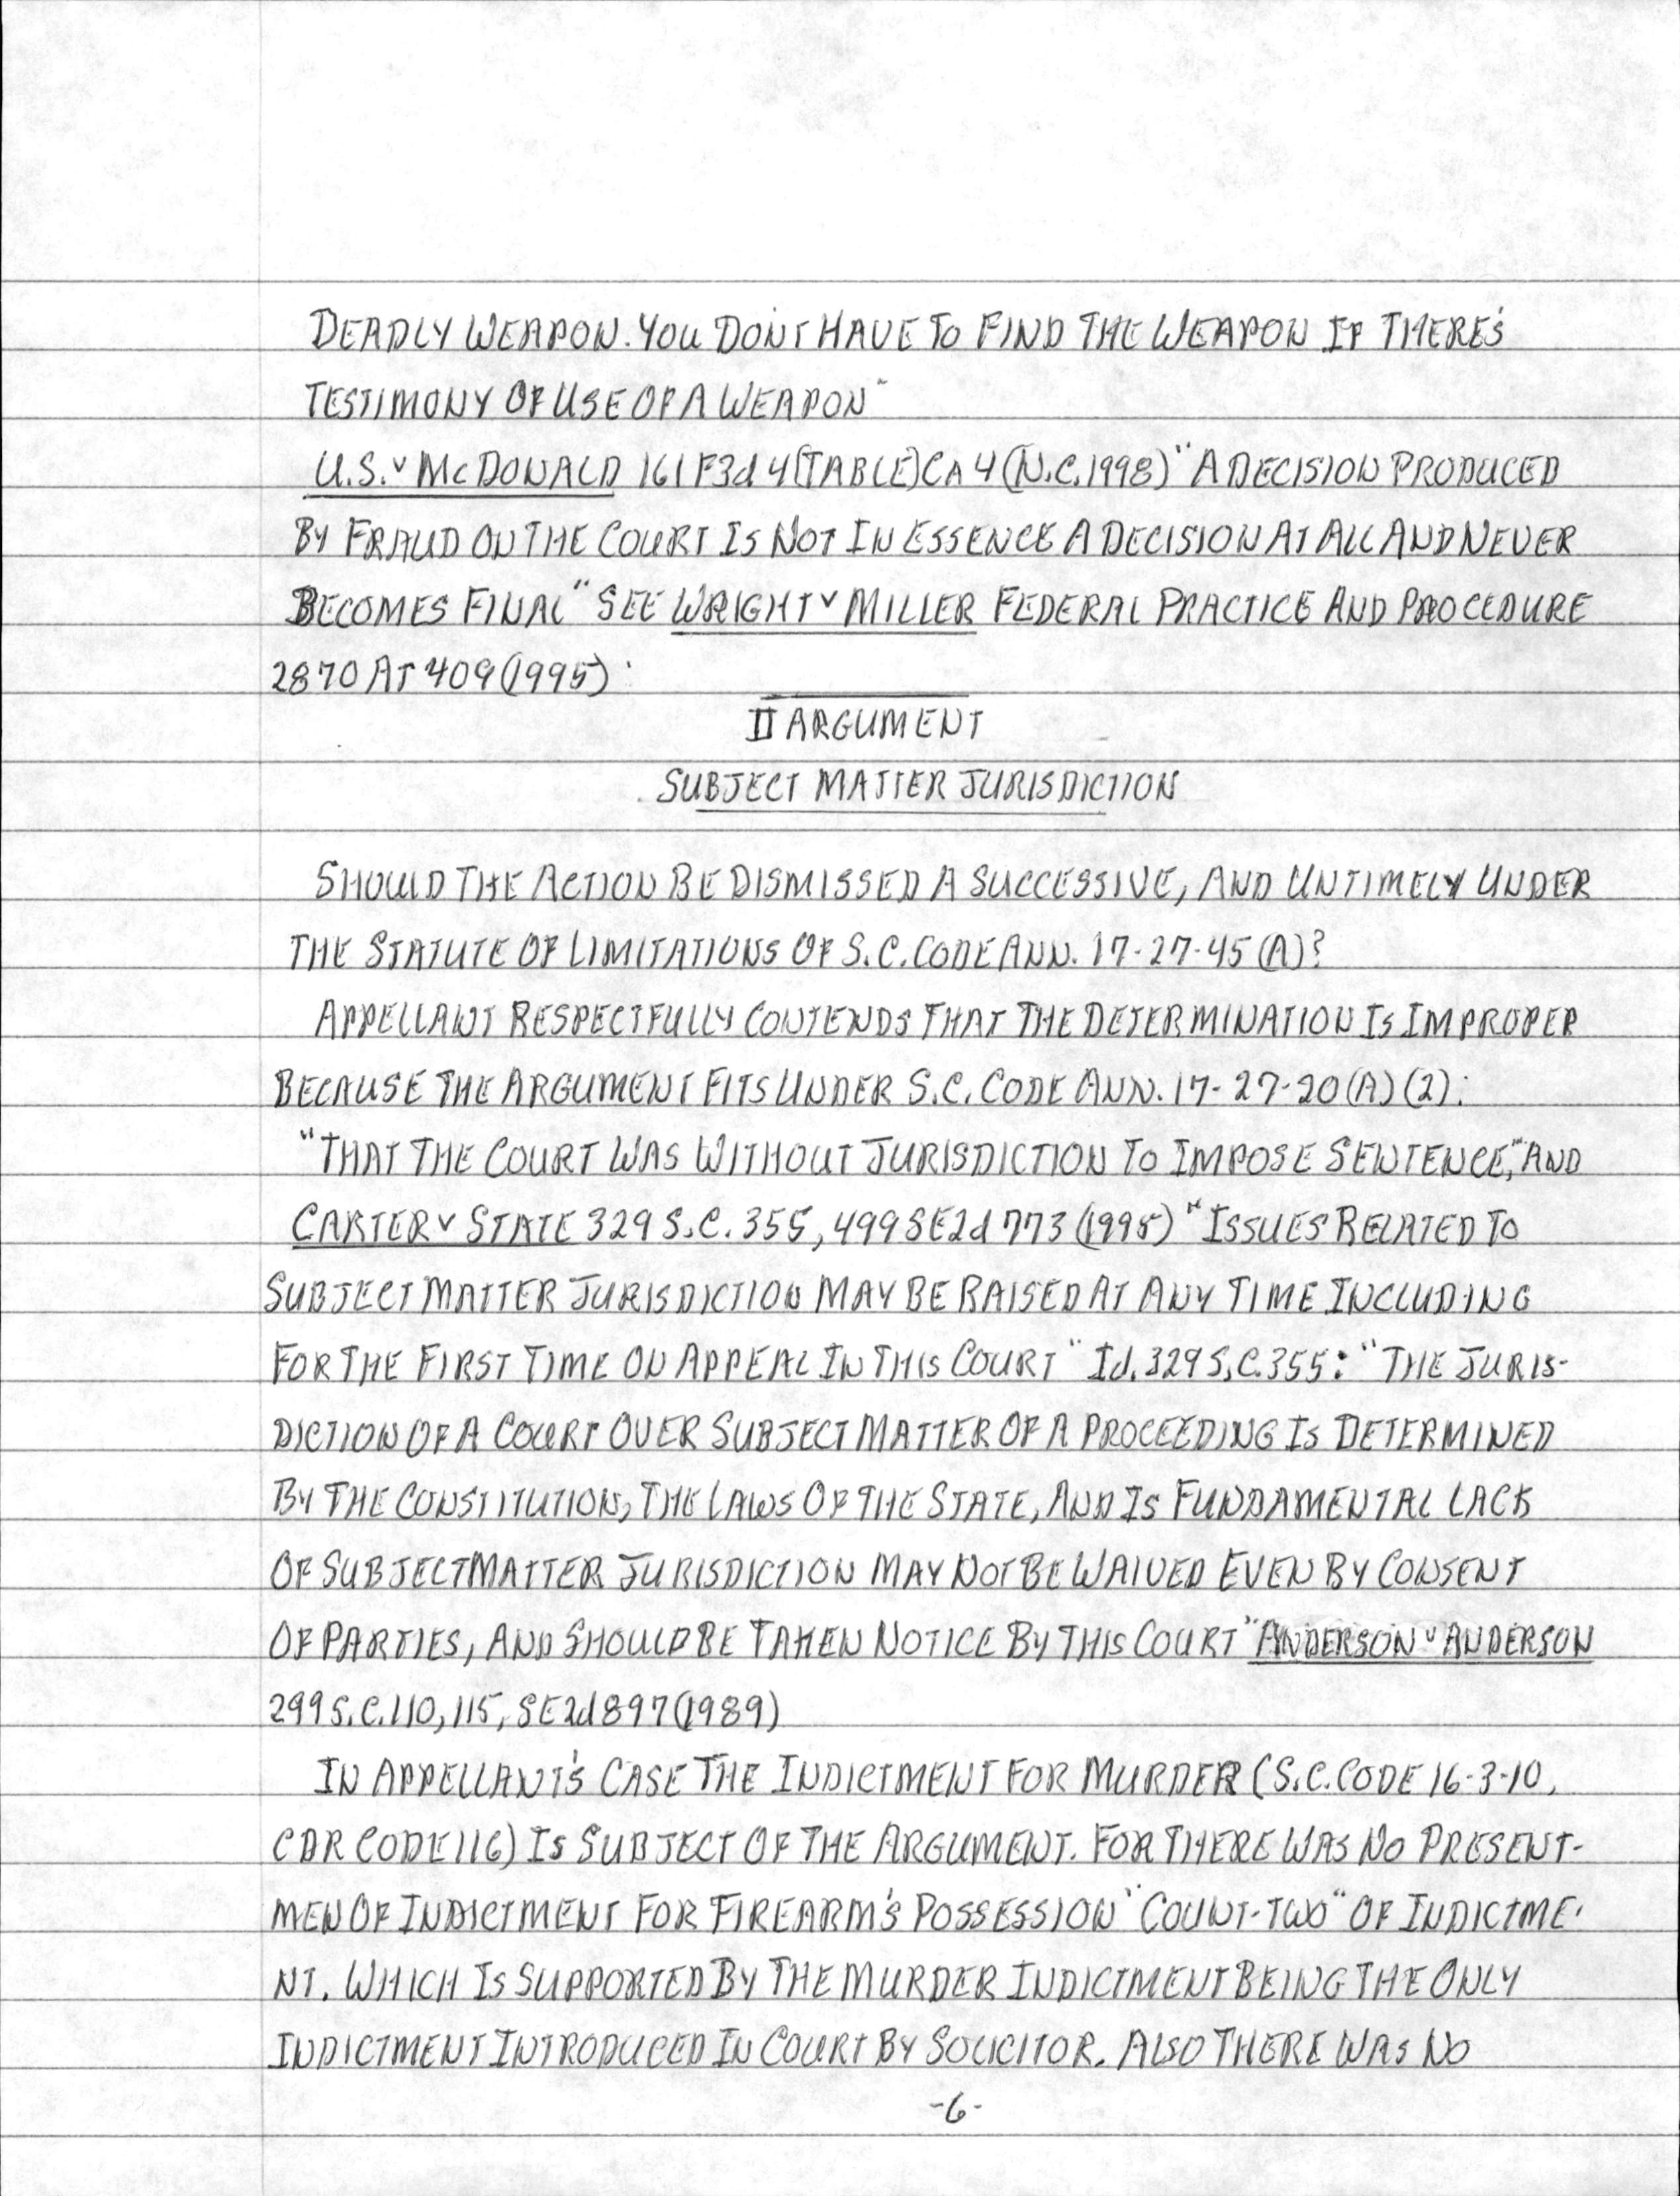 DEADLY WEAPON. YOU DON'T HAVE TO FIND THE WEAPON IF THERE'S
TESTIMONY OF USE OF A WEAPON"
U.S. v McDONALD 161 F3d 4 (TABLE) CA 4 (N.C. 1998) "A DECISION PRODUCED
BY FRAUD ON THE COURT IS NOT IN ESSENCE A DECISION AT ALL AND NEVER
BECOMES FINAL" SEE WRIGHT v MILLER FEDERAL PRACTICE AND PROCEDURE
2870 AT 409 (1995).
II ARGUMENT
SUBJECT MATTER JURISDICTION
SHOULD THE ACTION BE DISMISSED A SUCCESSIVE, AND UNTIMELY UNDER
THE STATUTE OF LIMITATIONS OF S.C. CODE ANN. 17-27-45 (A)?
APPELLANT RESPECTFULLY CONTENDS THAT THE DETERMINATION IS IMPROPER
BECAUSE THE ARGUMENT FITS UNDER S.C. CODE ANN. 17-27-20 (A) (2):
"THAT THE COURT WAS WITHOUT JURISDICTION TO IMPOSE SENTENCE," AND
CARTER v STATE 329 S.C. 355, 499 SE2d 773 (1998) "ISSUES RELATED TO
SUBJECT MATTER JURISDICTION MAY BE RAISED AT ANY TIME INCLUDING
FOR THE FIRST TIME ON APPEAL IN THIS COURT" Id. 329 S.C. 355: "THE JURIS-
DICTION OF A COURT OVER SUBJECT MATTER OF A PROCEEDING IS DETERMINED
BY THE CONSTITUTION, THE LAWS OF THE STATE, AND IS FUNDAMENTAL LACK
OF SUBJECT MATTER JURISDICTION MAY NOT BE WAIVED EVEN BY CONSENT
OF PARTIES, AND SHOULD BE TAKEN NOTICE BY THIS COURT" ANDERSON v ANDERSON
299 S.C. 110, 115, SE2d 897 (1989)
IN APPELLANT'S CASE THE INDICTMENT FOR MURDER (S.C. CODE 16-3-10,
CDR CODE 116) IS SUBJECT OF THE ARGUMENT. FOR THERE WAS NO PRESENT-
MEN OF INDICTMENT FOR FIREARM'S POSSESSION "COUNT-TWO" OF INDICTME-
NT. WHICH IS SUPPORTED BY THE MURDER INDICTMENT BEING THE ONLY
INDICTMENT INTRODUCED IN COURT BY SOLICITOR. ALSO THERE WAS NO
-6-